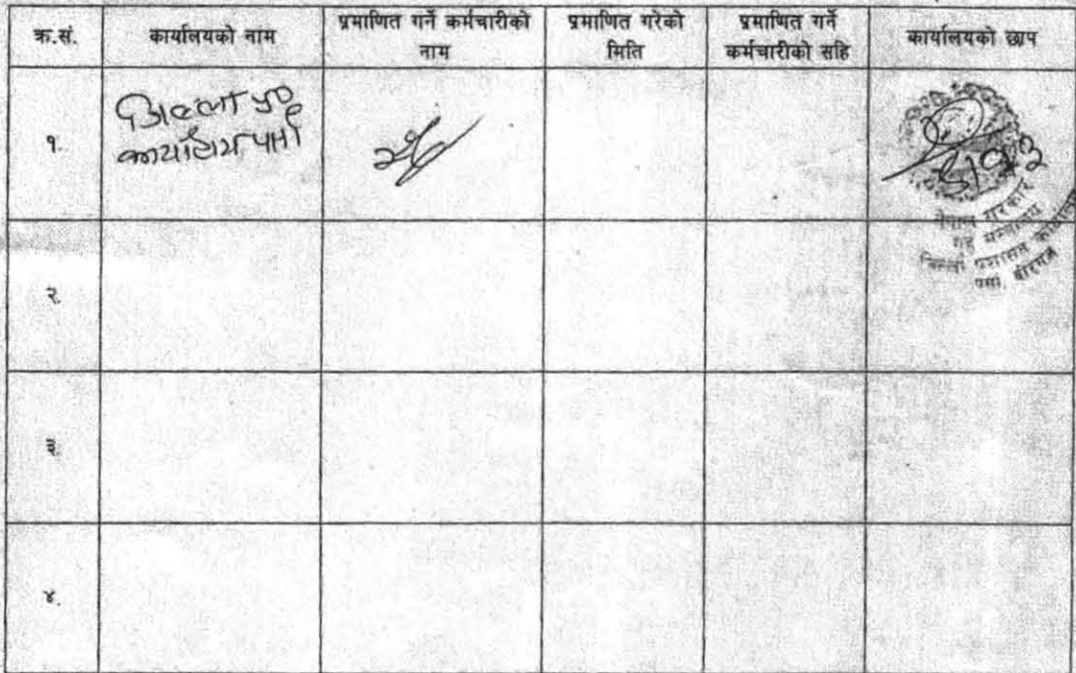 क्र.सं. कार्यालयको नाम प्रमाणित गर्ने कर्मचारीको नाम प्रमाणित गरेको मिति प्रमाणित गर्ने कर्मचारीको सहि कार्यालयको छाप
१. जिल्ला प्र०
कार्यालय पर्सा
नेपाल सरकार
गृह मन्त्रालय
जिल्ला प्रशासन कार्यालय
पर्सा, वीरगंज
२.
३.
४.